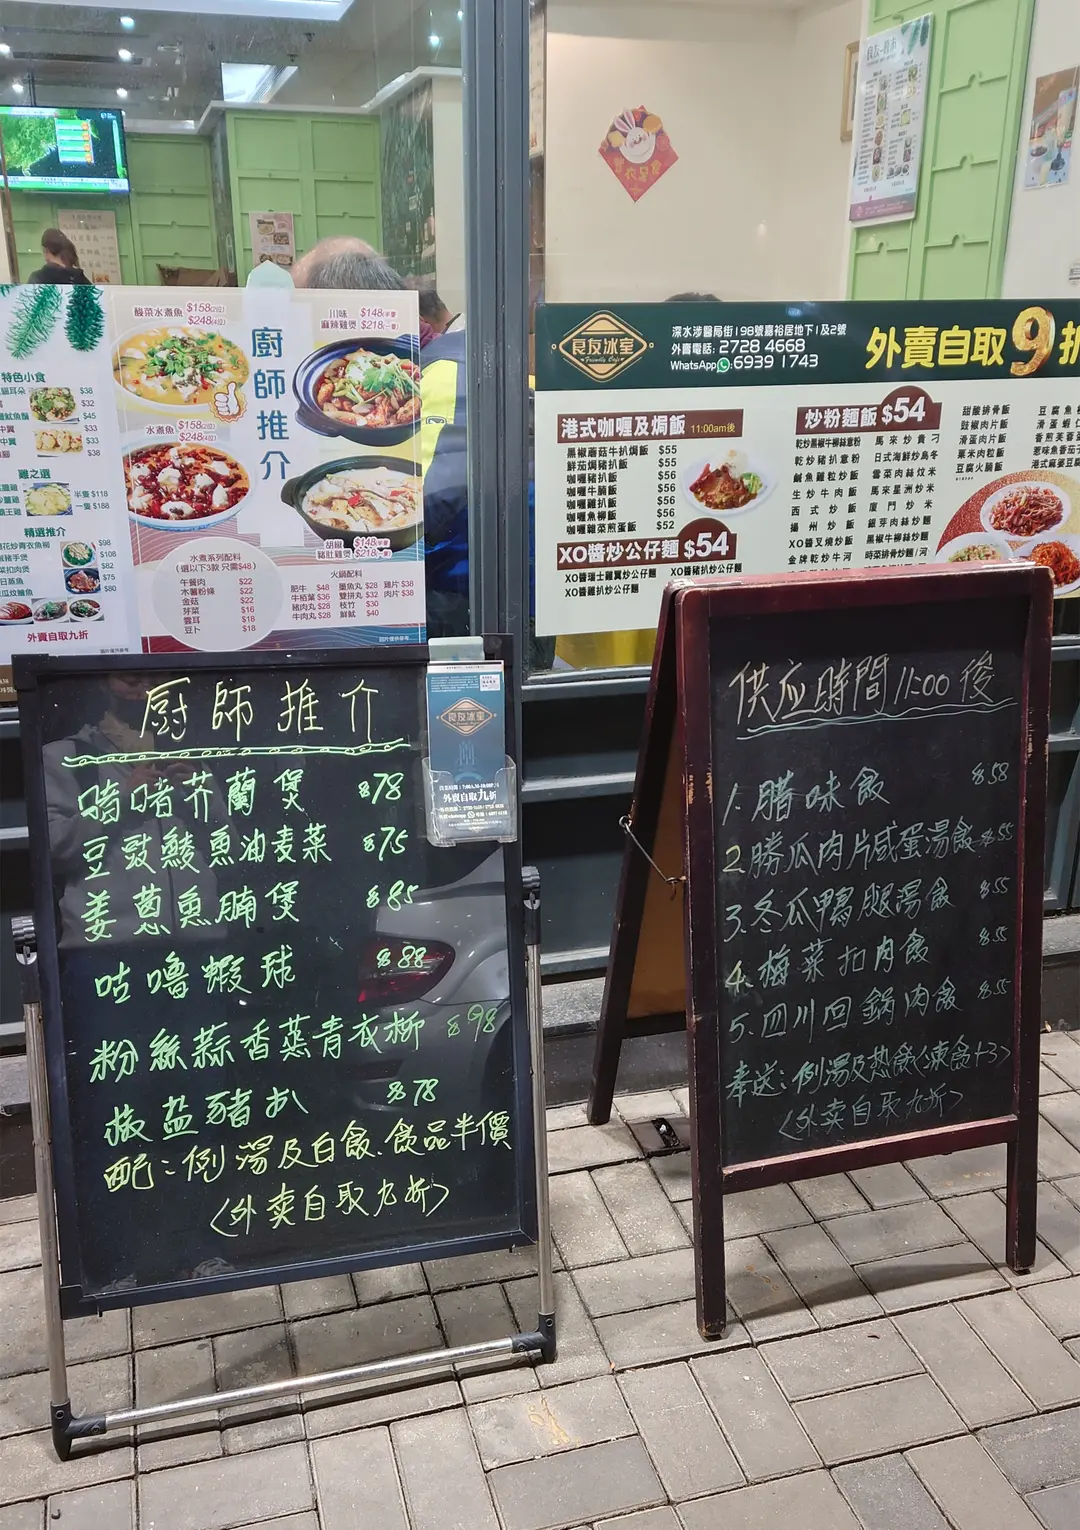 廚師推介
酸菜水煮魚 $158(2位)
$248(4位)
川味
麻辣雞煲
$148(半隻)
$218(一隻)
水煮魚 $158(2位)
$248(4位)
胡椒
豬肚雞煲
$148(半隻)
$218(一隻)
特色小食
$38
$32
$45
$33
$33
$38
雞之選
半隻 $118
一隻 $188
精選推介
$98
$108
$82
$75
$80
外賣自取九折
水煮系列配料
(選以下3款 只需$48)
午餐肉 $22
木薯粉條 $22
金菇 $22
芽菜 $16
雲耳 $18
豆卜 $18
火鍋配料
肥牛 $48 墨魚丸 $28 雞片 $38
牛栢葉 $36 雙拼丸 $32 肉片 $38
豬肉丸 $28 枝竹 $30
牛肉丸 $28 鮮魷 $40
良友冰室
Friendly Cafe
深水埗醫局街198號嘉裕居地下1及2號
外賣電話: 2728 4668
WhatsApp: 6939 1743
外賣自取9折
港式咖喱及焗飯 11:00am後
黑椒蘑菇牛扒焗飯 $55
鮮茄焗豬扒飯 $55
咖喱豬扒飯 $56
咖喱牛腩飯 $56
咖喱雞扒飯 $56
咖喱魚柳飯 $56
咖喱雜菜煎蛋飯 $52
XO醬炒公仔麵 $54
XO醬瑞士雞翼炒公仔麵 XO醬豬扒炒公仔麵
XO醬雞扒炒公仔麵
炒粉麵飯 $54
乾炒黑椒牛柳絲意粉 馬來炒貴刁
乾炒豬扒意粉 日式海鮮炒烏冬
鹹魚雞粒炒飯 雪菜肉絲炆米
生炒牛肉飯 馬來星洲炒米
西式炒飯 廈門炒米
揚州炒飯 銀芽肉絲炒麵
XO醬炒叉燒飯 黑椒牛柳絲炒麵
金牌乾炒牛河 時菜排骨炒麵/河
甜酸排骨飯
豉椒肉片飯
滑蛋肉片飯
粟米肉粒飯
豆腐火腩飯
廚師推介
啫啫芥蘭煲 $78
豆豉鯪魚油麦菜 $75
姜葱魚腩煲 $85
咕嚕蝦球 $88
粉絲蒜香蒸青衣柳 $98
椒盐豬扒 $78
配:例湯及白飯.飲品半價
<外卖自取九折>
良友冰室
外賣自取九折
供应時間11:00後
1.腊味飯 $58
2.勝瓜肉片咸蛋湯飯 $55
3.冬瓜鴨腿湯飯 $55
4.梅菜扣肉飯 $55
5.四川回鍋肉飯 $55
奉送:例湯及热飲<凍飲+3>
<外卖自取九折>